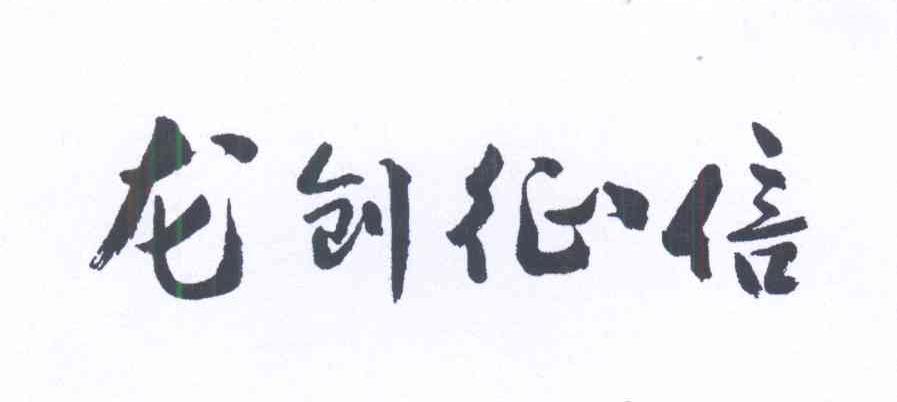 龙创征信